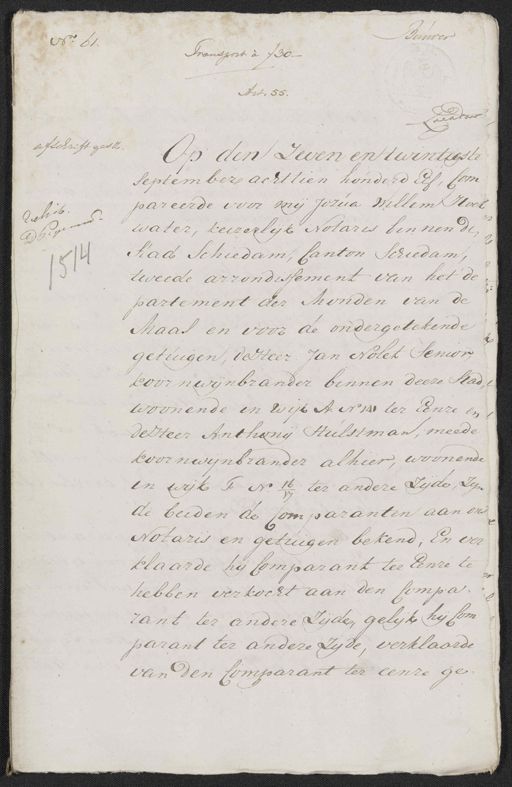 No. 61.
Transport à f30-
Art. 55.
afschrift gest.
1514
Op den Zeven en twintigste
September achttien honderd Elf, Com
pareerde voor mij Josua Willem
water, keizerlijk Notaris binnen de
Stad Schiedam, Canton Schiedam,
tweede arrondissement van het de
partement der Monden van de
Maas en voor de ondergetekende
getuigen, de Heer Jan Nolet Senior
koornwijnbrander binnen deeze Stad
woonende in Wijk A No 141 ter Eenre en
de Heer Anthony Hulstman, meede
koornwijnbrander alhier, woonende
in wijk F No 16/17 ter andere Zijde, Zyn
de beiden de Comparanten aan ons
Notaris en getuigen bekend, En ver
klaarde hij Comparant ter Eenre te
hebben verkocht aan den Compa-
rant ter andere Zijde, gelijk hij Com
parant ter andere Zyde, verklaarde
van den Comparant ter eenre ge-